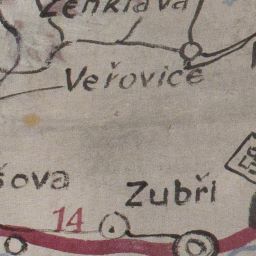 Ženklava
Veřovice
šova
Zubří
14
58